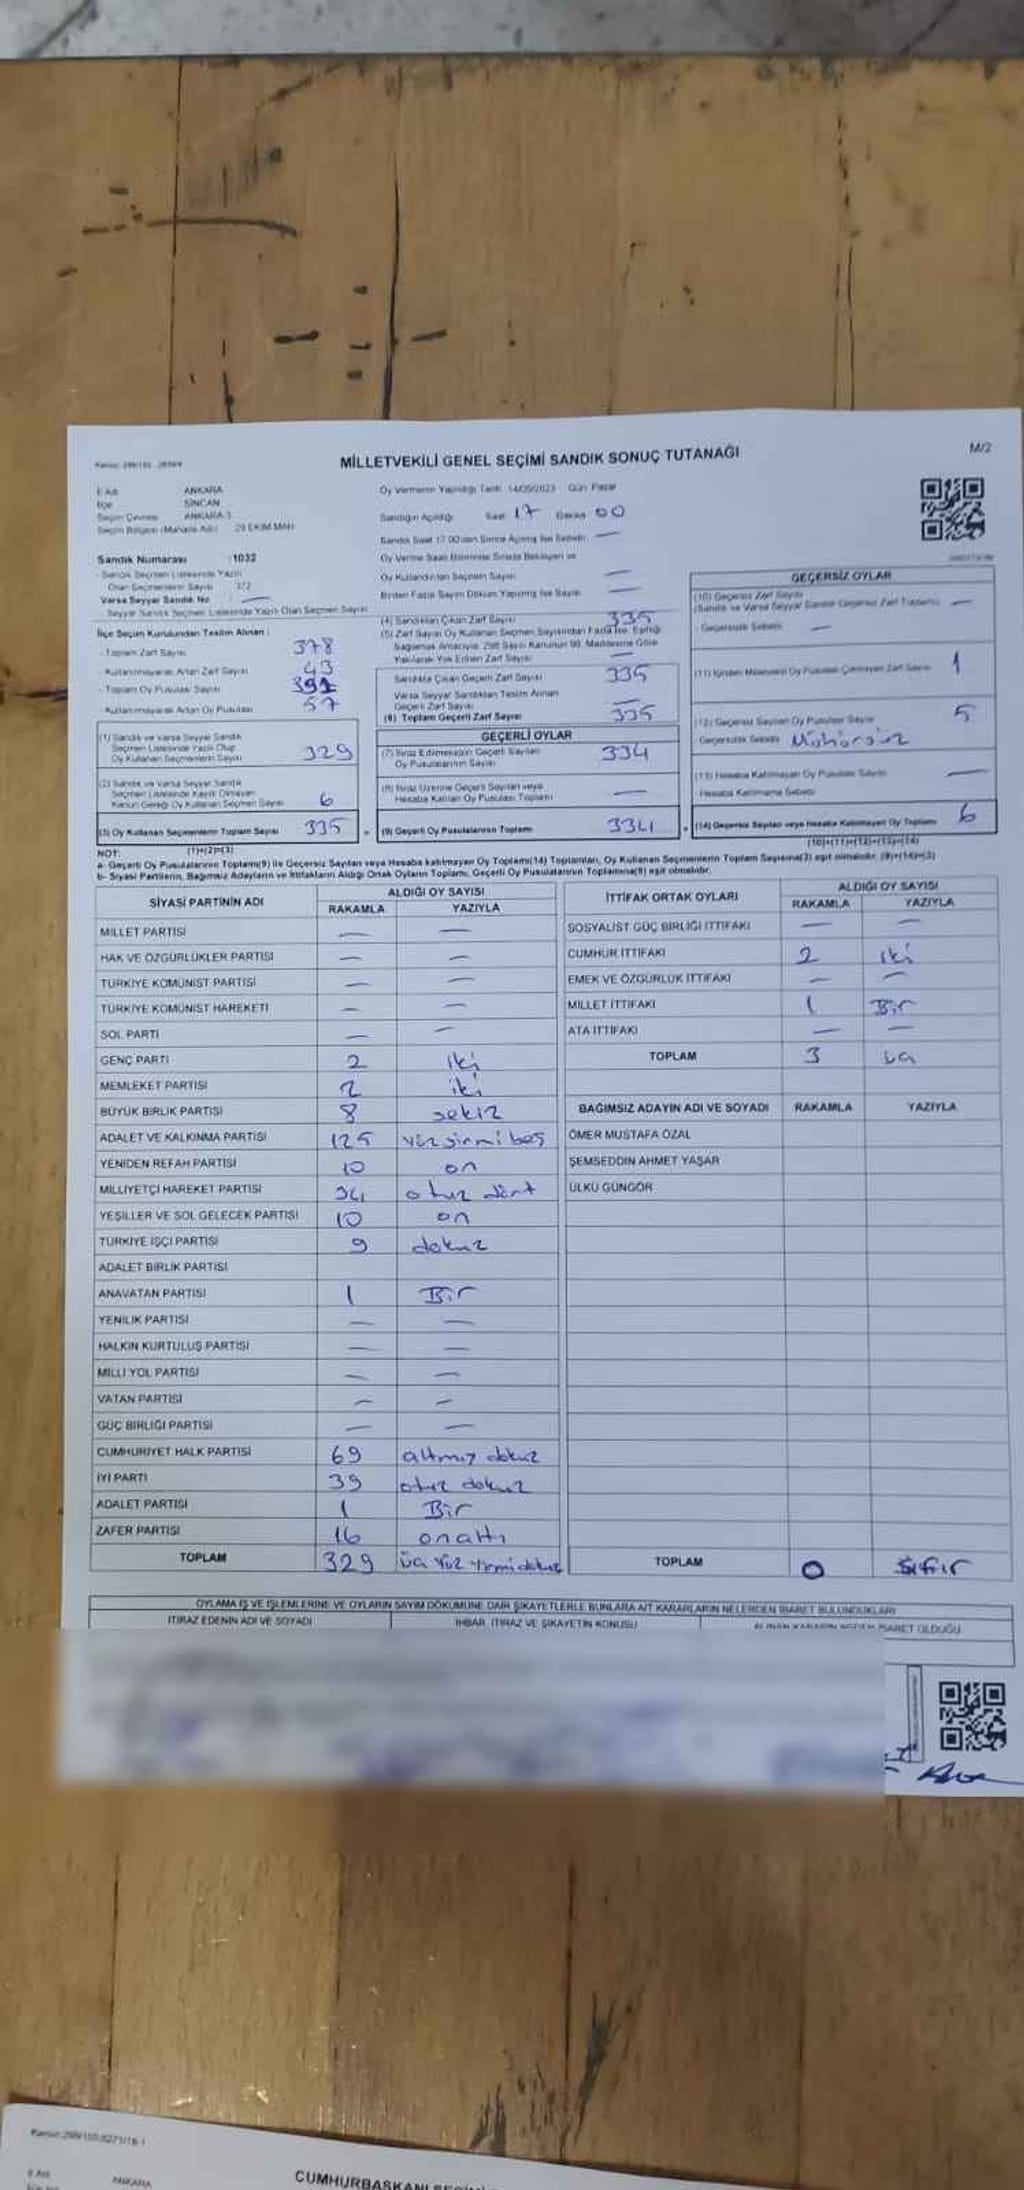 MİLLETVEKİLİ GENEL SEÇİMİ SANDIK SONUÇ TUTANAĞI
M/2
İl Adı ANKARA
İlçe SİNCAN
Seçim Çevresi ANKARA-3
Seçim Bölgesi (Mahalle Adı) 29 EKİM MAH.
Oy Vermenin Yapıldığı Tarih: 14/05/2023 Gün: Pazar
Sandığın Açıldığı Saat 17 Dakika 00
Sandık Saat 17.00'den Sonra Açılmış İse Sebebi —
Oy Verme Saati Bitiminde Sırada Bekleyen ve
Oy Kullandırılan Seçmen Sayısı —
Birden Fazla Sayım Döküm Yapılmış İse Sayısı —
Sandık Numarası :1032
- Sandık Seçmen Listesinde Yazılı
Olan Seçmenlerin Sayısı 372
Varsa Seyyar Sandık No : —
Seyyar Sandık Seçmen Listesinde Yazılı Olan Seçmen Sayısı
İlçe Seçim Kurulundan Teslim Alınan :
- Toplam Zarf Sayısı 378
- Kullanılmayarak Artan Zarf Sayısı 43
- Toplam Oy Pusulası Sayısı
- Kullanılmayarak Artan Oy Pusulası 57
(1) Sandık ve Varsa Seyyar Sandık
Seçmen Listesinde Yazılı Olup
Oy Kullanan Seçmenlerin Sayısı 329
(2) Sandık ve Varsa Seyyar Sandık
Seçmen Listesinde Kayıtlı Olmayan
Kanun Gereği Oy Kullanan Seçmen Sayısı 6
(3) Oy Kullanan Seçmenlerin Toplam Sayısı 335
(1)+(2)=(3)
(4) Sandıktan Çıkan Zarf Sayısı 335
(5) Zarf Sayısı Oy Kullanan Seçmen Sayısından Fazla İse, Eşitliği
Sağlamak Amacıyla, 298 Sayılı Kanunun 98. Maddesine Göre
Yakılarak Yok Edilen Zarf Sayısı —
Sandıkta Çıkan Geçerli Zarf Sayısı 335
Varsa Seyyar Sandıktan Teslim Alınan
Geçerli Zarf Sayısı —
(6) Toplam Geçerli Zarf Sayısı 335
GEÇERLİ OYLAR
(7) İtiraz Edilmeksizin Geçerli Sayılan
Oy Pusulalarının Sayısı 334
(8) İtiraz Üzerine Geçerli Sayılan veya
Hesaba Katılan Oy Pusulası Toplamı —
= (9) Geçerli Oy Pusulalarının Toplamı 334
GEÇERSİZ OYLAR
(10) Geçersiz Zarf Sayısı
(Sandık ve Varsa Seyyar Sandık Geçersiz Zarf Toplamı) —
- Geçersizlik Sebebi —
(11) İçinden Milletvekili Oy Pusulası Çıkmayan Zarf Sayısı 1
(12) Geçersiz Sayılan Oy Pusulası Sayısı 5
- Geçersizlik Sebebi Mühürsüz
(13) Hesaba Katılmayan Oy Pusulası Sayısı —
- Hesaba Katılmama Sebebi
+ (14) Geçersiz Sayılan veya Hesaba Katılmayan Oy Toplamı 6
(10)+(11)+(12)+(13)=(14)
NOT:
a- Geçerli Oy Pusulalarının Toplamı(9) ile Geçersiz Sayılan veya Hesaba katılmayan Oy Toplamı(14) Toplamları, Oy Kullanan Seçmenlerin Toplam Sayısına(3) eşit olmalıdır. (9)+(14)=(3)
b- Siyasi Partilerin, Bağımsız Adayların ve İttifakların Aldığı Ortak Oyların Toplamı, Geçerli Oy Pusulalarının Toplamına(9) eşit olmalıdır.
SİYASİ PARTİNİN ADI ALDIĞI OY SAYISI
RAKAMLA YAZIYLA
MİLLET PARTİSİ — —
HAK VE ÖZGÜRLÜKLER PARTİSİ — —
TÜRKİYE KOMÜNİST PARTİSİ — —
TÜRKİYE KOMÜNİST HAREKETİ — —
SOL PARTİ — —
GENÇ PARTİ 2 iki
MEMLEKET PARTİSİ 2 iki
BÜYÜK BİRLİK PARTİSİ 8 sekiz
ADALET VE KALKINMA PARTİSİ 125 yüzyirmi beş
YENİDEN REFAH PARTİSİ 10 on
MİLLİYETÇİ HAREKET PARTİSİ 34 otuz dört
YEŞİLLER VE SOL GELECEK PARTİSİ 10 on
TÜRKİYE İŞÇİ PARTİSİ 9 dokuz
ADALET BİRLİK PARTİSİ
ANAVATAN PARTİSİ 1 Bir
YENİLİK PARTİSİ — —
HALKIN KURTULUŞ PARTİSİ — —
MİLLİ YOL PARTİSİ — —
VATAN PARTİSİ — —
GÜÇ BİRLİĞİ PARTİSİ — —
CUMHURİYET HALK PARTİSİ 69 altmış dokuz
İYİ PARTİ 39 otuz dokuz
ADALET PARTİSİ 1 Bir
ZAFER PARTİSİ 16 onaltı
TOPLAM 329 üç yüz yirmi dokuz
İTTİFAK ORTAK OYLARI ALDIĞI OY SAYISI
RAKAMLA YAZIYLA
SOSYALİST GÜÇ BİRLİĞİ İTTİFAKI — —
CUMHUR İTTİFAKI 2 iki
EMEK VE ÖZGÜRLÜK İTTİFAKI — —
MİLLET İTTİFAKI 1 Bir
ATA İTTİFAKI — —
TOPLAM 3 üç
BAĞIMSIZ ADAYIN ADI VE SOYADI RAKAMLA YAZIYLA
ÖMER MUSTAFA ÖZAL
ŞEMSEDDİN AHMET YAŞAR
ÜLKÜ GÜNGÖR
TOPLAM 0 sıfır
OYLAMA İŞ VE İŞLEMLERİNE VE OYLARIN SAYIM DÖKÜMÜNE DAİR ŞİKAYETLERLE BUNLARA AİT KARARLARIN NELERDEN İBARET BULUNDUKLARI
İTİRAZ EDENİN ADI VE SOYADI İHBAR, İTİRAZ VE ŞİKAYETİN KONUSU ALINAN KARARIN NEDEN İBARET OLDUĞU
İl Adı ANKARA
CUMHURBAŞKANI